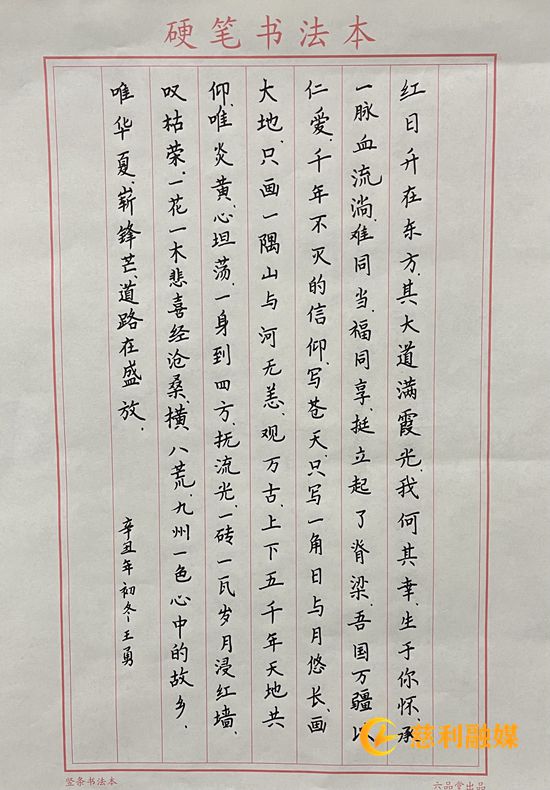 硬笔书法本
红日升在东方,其大道满霞光,我何其幸,生于你怀,承
一脉血流淌,难同当,福同享,挺立起了脊梁,吾国万疆以
仁爱,千年不灭的信仰,写苍天,只写一角日与月悠长,画
大地,只画一隅山与河无恙,观万古,上下五千年天地共
仰,唯炎黄,心坦荡,一身到四方,抚流光,一砖一瓦岁月浸红墙,
叹枯荣,一花一木悲喜经沧桑,横八荒,九州一色心中的故乡,
唯华夏,崭锋芒,道路在盛放.
辛丑年初冬王勇
慈利融媒
竖条书法本
六品堂出品